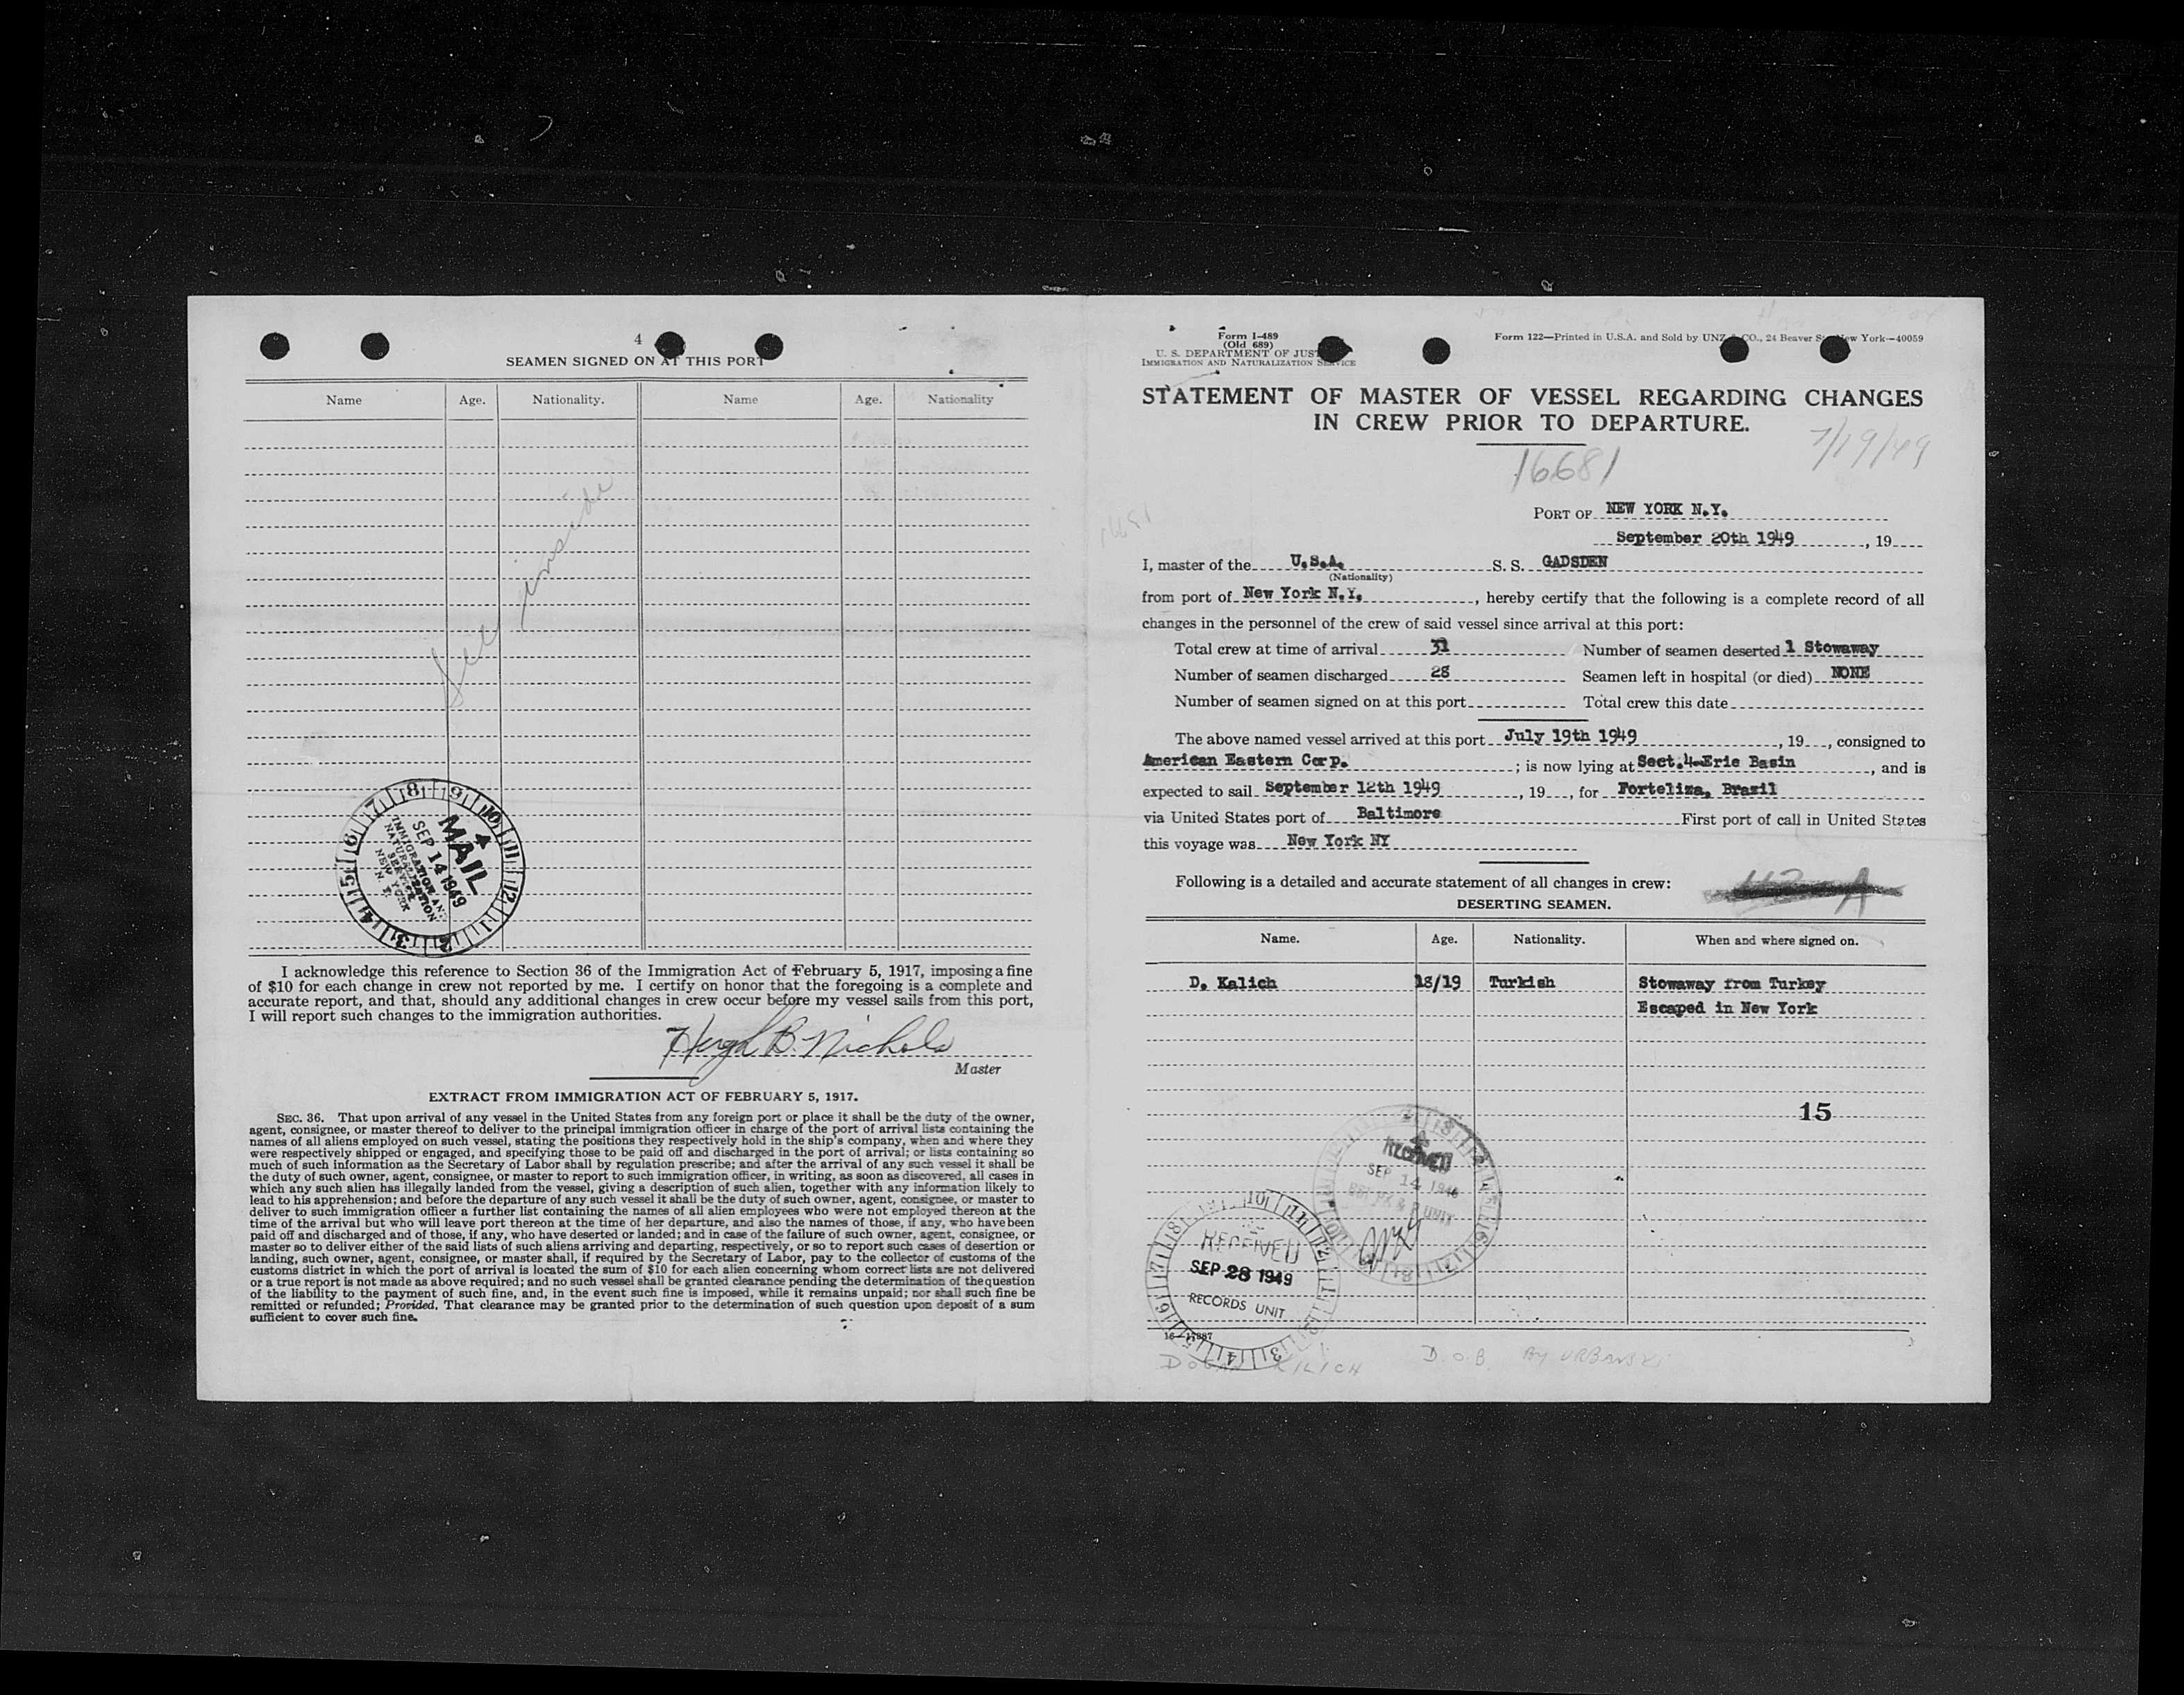 4
SEAMEN SIGNED ON AT THIS PORT
Name Age. Nationality. Name Age. Nationality
See inside
MAIL
SEP 14 1949
IMMIGRATION AND
NATURALIZATION
SERVICE
NEW YORK
N. Y.
I acknowledge this reference to Section 36 of the Immigration Act of February 5, 1917, imposing a fine
of $10 for each change in crew not reported by me. I certify on honor that the foregoing is a complete and
accurate report, and that, should any additional changes in crew occur before my vessel sails from this port,
I will report such changes to the immigration authorities.
Hugh B. Nichols
Master
EXTRACT FROM IMMIGRATION ACT OF FEBRUARY 5, 1917.
SEC. 36. That upon arrival of any vessel in the United States from any foreign port or place it shall be the duty of the owner,
agent, consignee, or master thereof to deliver to the principal immigration officer in charge of the port of arrival lists containing the
names of all aliens employed on such vessel, stating the positions they respectively hold in the ship's company, when and where they
were respectively shipped or engaged, and specifying those to be paid off and discharged in the port of arrival; or lists containing so
much of such information as the Secretary of Labor shall by regulation prescribe; and after the arrival of any such vessel it shall be
the duty of such owner, agent, consignee, or master to report to such immigration officer, in writing, as soon as discovered, all cases in
which any such alien has illegally landed from the vessel, giving a description of such alien, together with any information likely to
lead to his apprehension; and before the departure of any such vessel it shall be the duty of such owner, agent, consignee, or master to
deliver to such immigration officer a further list containing the names of all alien employees who were not employed thereon at the
time of the arrival but who will leave port thereon at the time of her departure, and also the names of those, if any, who have been
paid off and discharged and of those, if any, who have deserted or landed; and in case of the failure of such owner, agent, consignee, or
master so to deliver either of the said lists of such aliens arriving and departing, respectively, or so to report such cases of desertion or
landing, such owner, agent, consignee, or master shall, if required by the Secretary of Labor, pay to the collector of customs of the
customs district in which the port of arrival is located the sum of $10 for each alien concerning whom correct lists are not delivered
or a true report is not made as above required; and no such vessel shall be granted clearance pending the determination of the question
of the liability to the payment of such fine, and, in the event such fine is imposed, while it remains unpaid; nor shall such fine be
remitted or refunded; Provided, That clearance may be granted prior to the determination of such question upon deposit of a sum
sufficient to cover such fine.
Form I-489
(Old 689)
U. S. DEPARTMENT OF JUSTICE
IMMIGRATION AND NATURALIZATION SERVICE
Form 122—Printed in U.S.A. and Sold by UNZ & CO., 24 Beaver St., New York—40059
STATEMENT OF MASTER OF VESSEL REGARDING CHANGES
IN CREW PRIOR TO DEPARTURE.
7/19/49
16681
PORT OF NEW YORK N.Y.
September 20th 1949, 19
I, master of the U.S.A. S. S. GADSDEN
(Nationality)
from port of New York N.Y., hereby certify that the following is a complete record of all
changes in the personnel of the crew of said vessel since arrival at this port:
Total crew at time of arrival 31 Number of seamen deserted 1 Stowaway
Number of seamen discharged 28 Seamen left in hospital (or died) NONE
Number of seamen signed on at this port Total crew this date
The above named vessel arrived at this port July 19th 1949, 19, consigned to
American Eastern Corp.; is now lying at Sect.4-Erie Basin, and is
expected to sail September 12th 1949, 19, for Forteliza, Brazil
via United States port of Baltimore First port of call in United States
this voyage was New York NY
Following is a detailed and accurate statement of all changes in crew:
DESERTING SEAMEN.
Name. Age. Nationality. When and where signed on.
D. Kalich 18/19 Turkish Stowaway from Turkey
Escaped in New York
15
RECEIVED
SEP 14 1949
RECEIVED
SEP 28 1949
RECORDS UNIT
16—17887
KILICH D.O.B. BY URBANSKI